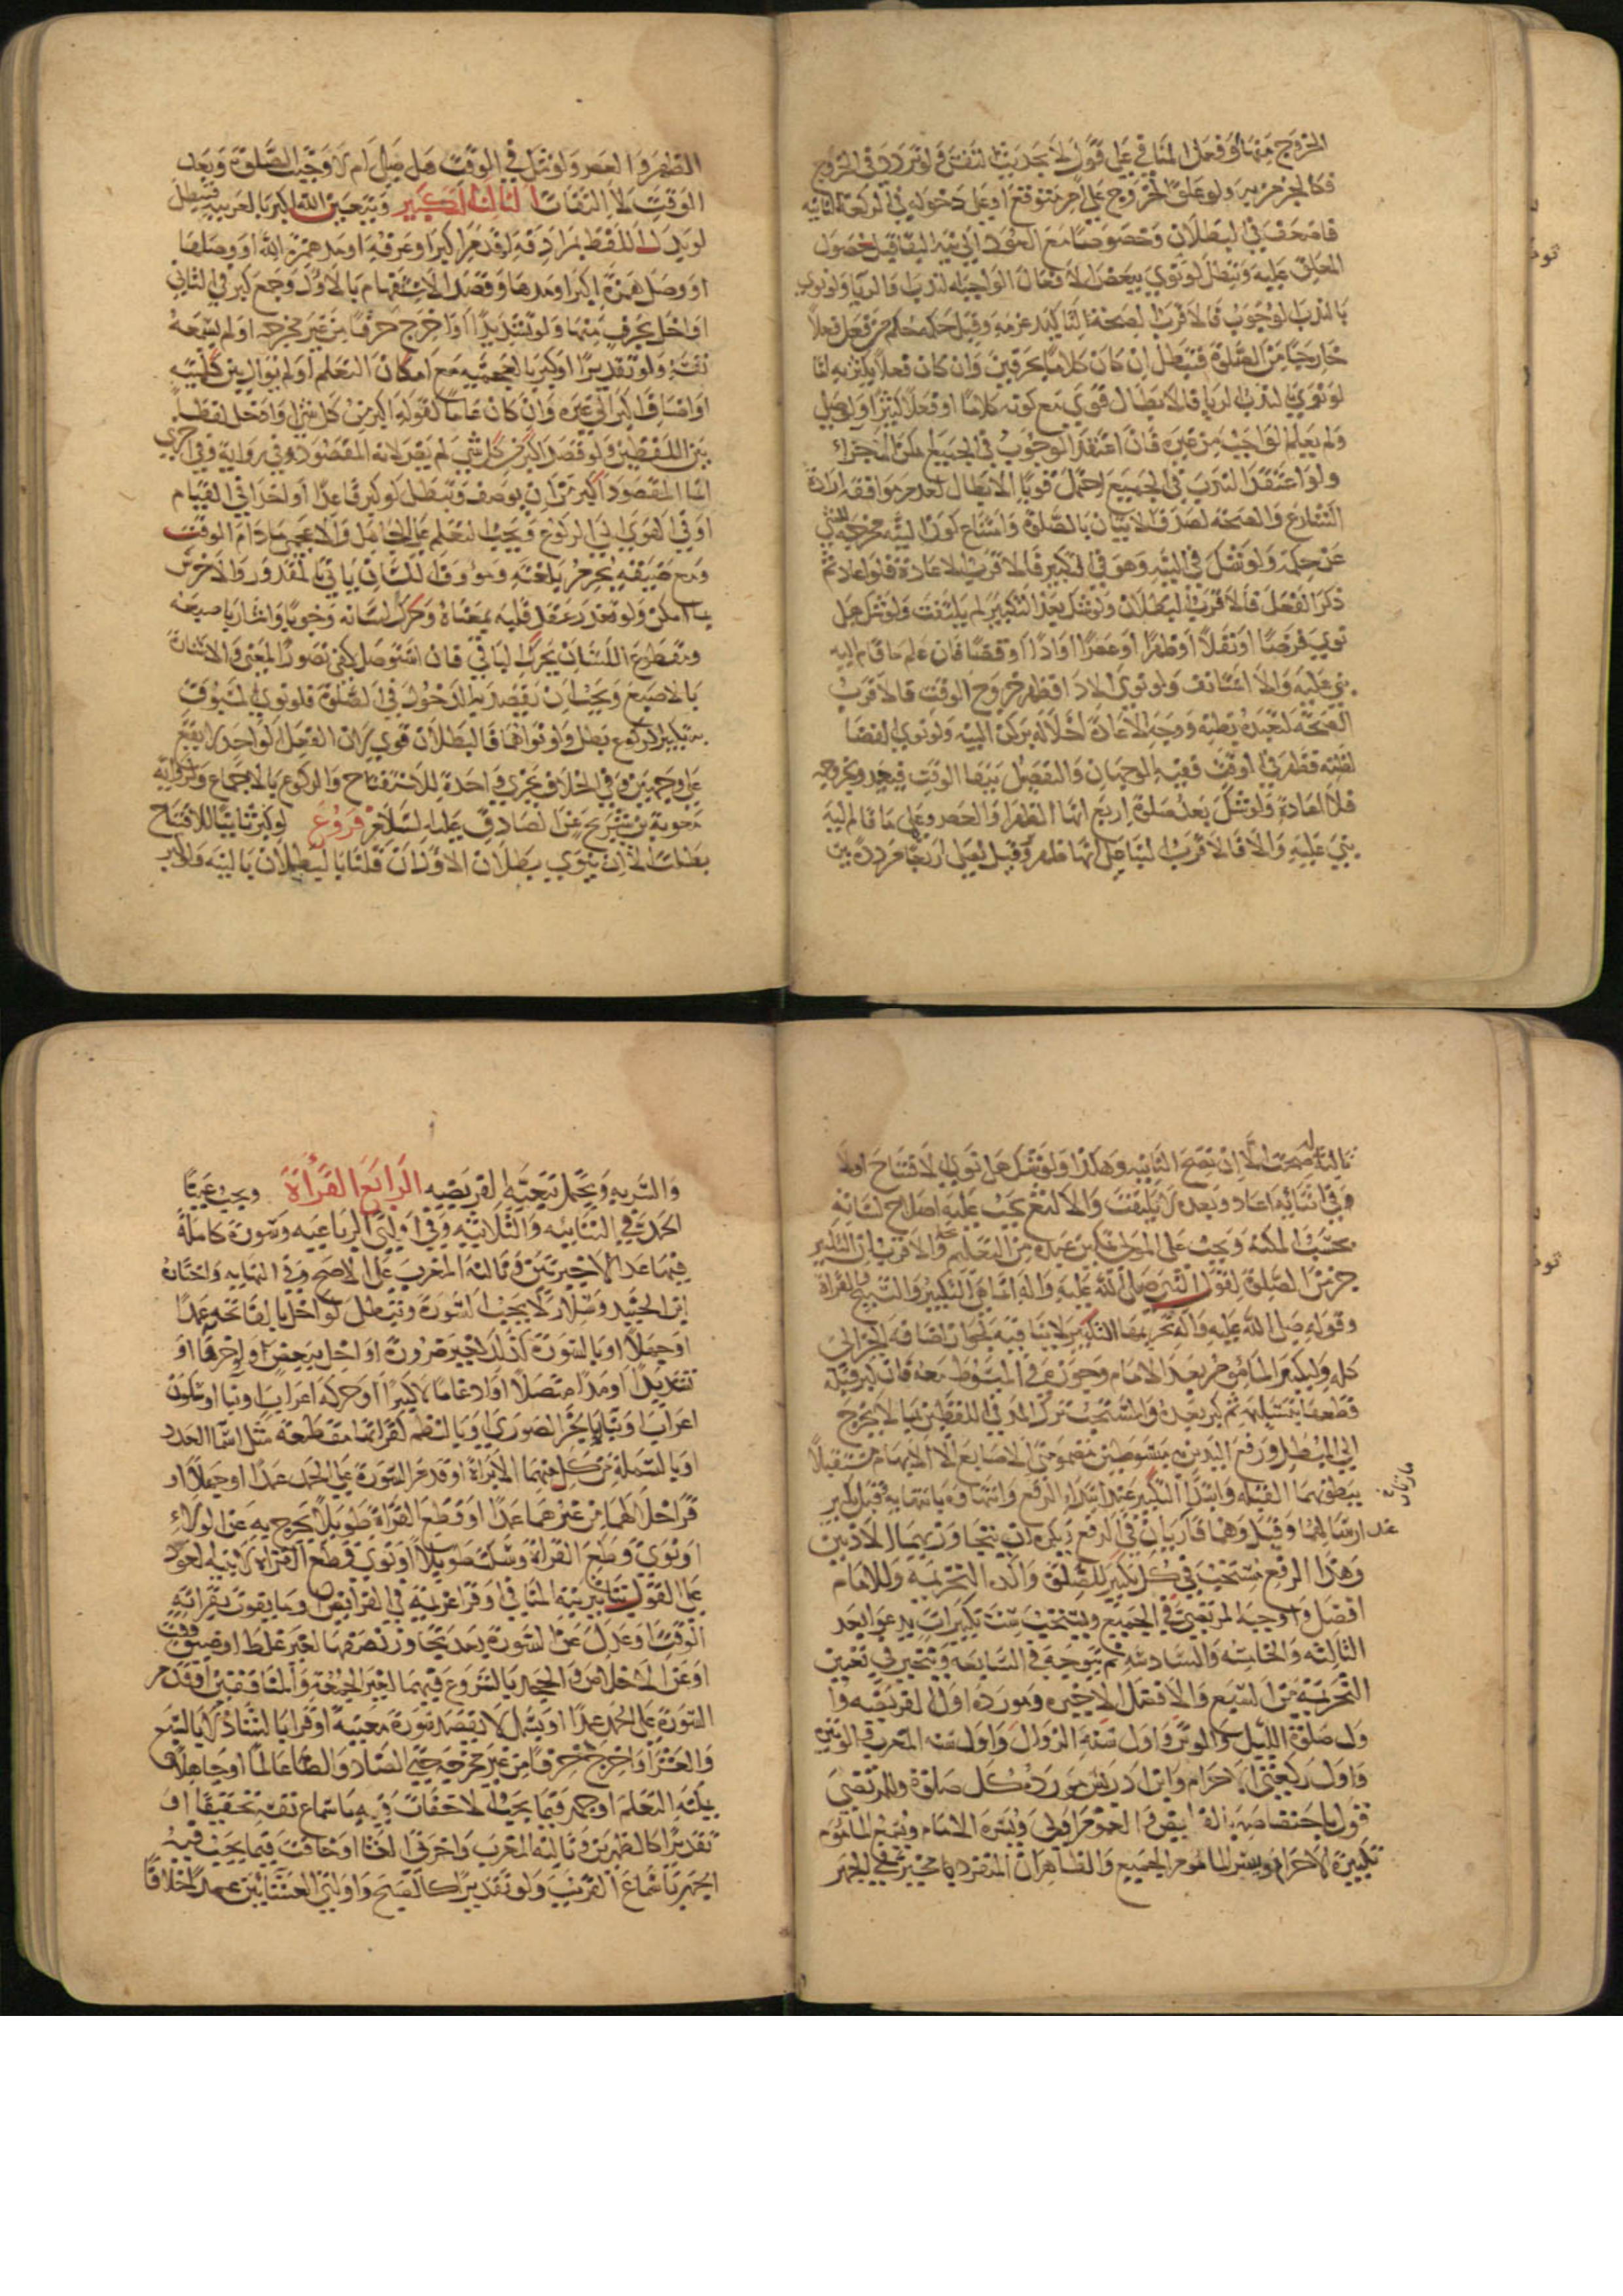 الخروج منها او فعل المنافي على قول لا بحديث النفس ولو تردد في الخروج
فكالجزم به ولو علق الخروج على امر متوقع او على دخوله في الركعة الثانية
البطلان وخصوصا مع
المعلق عليه وتبطل لو نوى ببعض الافعال الواجبه الندب او الريا ولو نوى
بالندب الوجوب فالاقرب الصحة لتاكيد عزمه وقيل حكمه حكم من فعل فعلا
خارجا من الصلوة فتبطل ان كان كلاما بحرفين وان كان فعلا يكثر به اما
لو نوى بالندب الريا فالابطال قوي مع كونه كلاما او فعلا كثيرا ولو صلى
ولم يعلم الواجب من غيره فان اعتقد الوجوب في الجميع
ولو اعتقد الندب في الجميع احتمل قويا الابطال لعدم موافقة ارادة
الشارع والصحة لصدق الاتيان بالصلوة وامتناع كون النية مخرجة للشي
عن حكمه ولو شك في النية وهو في التكبير فالاقرب الاعادة فلو اعاد ثم
ذكر الفعل فالاقرب البطلان ولو شك بعد التكبير لم يلتفت ولو شك هل
نوى فرضا او نفلا او ظهرا او عصرا او اداء او قضا فان علم ما قام اليه
بنى عليه والا استانف ولو نوى الادا فظهر خروج الوقت فالاقرب
الصحة لتعبده بظنه ووجه الاعادة اخلاله بركن النية ولو نوى القضا
لظنه فظهر في الوقت ففيه الوجهان والتفصيل ببقا الوقت فيعيد وبخروجه
فلا اعادة ولو شك بعد صلوة اربع انها الظهر او العصر وعلم ما قام اليه
بنى عليه والا فالاقرب البنا على انها ظهر وقيل يصلي اربعا مرددة بين
الظهر والعصر ولو شك في الوقت هل صلى ام لا وجبت الصلوة وبعد
الوقت لا التفات الثالث التكبير ويتعين الله اكبر بالعربية فتبطل
لو بدل اللفظ بمرادفه او قدم اكبر او عرفه او مد همزة الله او وصلها
او وصل همزة اكبر او مدها وقصد الاستفهام بالاول وجمع كبر في الثاني
او اخل بحرف منها ولو تشديدا او اخرج حرفا من غير مخرجه او لم يسمعه
نفسه ولو تقديرا او كبر بالعجمية مع امكان التعلم او لم يوال بين كلمتيه
او اضاف اكبر الى غيره وان كان عاما كقوله اكبر من كل شي او ادخل لفظا
بين اللفظين ولو قصد اكبر من كل شي لم يضر لانه المقصود وفي رواية وفي اخرى
انما المقصود اكبر من ان يوصف وتبطل لو كبر قاعدا او اخذا في القيام
او في الهوي الى الركوع ويجب التعلم على الجاهل والاعجمي ما دام الوقت
ومع ضيقه يحرم بلغته ومؤوف اللسان ياتي بالمقدور والاخرس
بما امكن ولو تعذر عقد قلبه بمعناه وحرك لسانه وجوبا واشار باصبعه
ومقطوع اللسان يحرك الباقي فان استوصل كفى تصور المعنى والاشارة
بالاصبع ويجب ان يقصد به الدخول في الصلوة فلو نوى المسبوق
به تكبير الركوع بطل ولو نواهما فالبطلان قوي لان الفعل الواحد لا يقع
على وجهين وفي الخلاف يجزي واحدة للاستفتاح والركوع بالاجماع ولرواية
معوية بن شريح عن الصادق عليه السلم فروع لو كبر ثانيا للافتتاح
بطلتا الا ان ينوي بطلان الاول ان قلنا بالبطلان بالنية ولو كبر
ثالثا صحت الا ان تصح الثانيه وهكذا ولو شك هل نوى الافتتاح اولا
وفي اثنائه اعاد وبعده لا يلتفت والالثغ يجب عليه اصلاح لسانه
بحسب المكنة ويجب على المولى تمكين عبده من التعليم والاقرب ان التكبير
جزء من الصلوة لقول النبي صلى الله عليه واله انما هي التكبير والتسبيح والقراة
وقوله صلى الله عليه واله تحريمها التكبير لا ينافيه لجواز اضافة الجزء الى
كله وليكبر الماموم بعد الامام وجوز في المبسوط معه فان كبر قبله
قطعها بتسليمة ثم كبر بعده والمستحب ترك المد في اللفظين بما لا يخرج
الى المبطل ورفع اليدين مبسوطتين مضمومتي الاصابع الا الابهام مستقبلا
ببطونهما القبله وابتدا التكبير عند ابتداء الرفع وانتهاؤه بانتهايه وقيل يكبر
عند ارسالهما وقيل وهما قاريان في الرفع ويكره ان يتجاوز بهما الاذنين
وهذا الرفع مستحب في كل تكبير للصلوة واكده التحريمة وللامام
افضل واوجبه المرتضى في الجميع ويستحب ست تكبيرات يدعو بعد
الثالثه والخامسه والسادسة ثم يتوجه في السابعه ويتخير في تعيين
التحريمة من السبع والافضل الاخيره ومورده اول الفريضه وا
ول صلوة الليل والوتر واول سنة الزوال واول سنه المغرب والوتيرة
واول ركعتي الاحرام وابن ادريس مورده كل صلوة وللمرتضى
قول باختصاصه بالفرايض والعموم اولى ويسر الامام ويسمع الماموم
تكبيرة الاحرام ويسر الماموم الجميع والظاهر ان المنفرد مخير في الجهر
والسر به ويحتمل تبعية الفريضه الرابع القراة ويجب عينا
الحمد في الثنائيه والثلاثيه وفي اوليي الرباعيه وسورة كاملة
فيما عدا الاخيرتين وثالثة المغرب على الاصح وفي النهايه واختاره
ابن الجنيد وسلار لا يجب السورة وتبطل لو اخل بالفاتحه عمدا
او جهلا او بالسورة كذلك لغير ضرورة او اخل ببعض ولو حرفا او
تشديدا او مدا متصلا او ادغاما كبيرا او حركة اعراب او بنا او سكون
اعراب او بنا او بالجزء الصوري او بالنظم لقراتها مقطعة مثل اسما العدد
او بالبسملة من كل منهما الا براة او قدم السورة على الحمد عمدا او جهلا او
قرا خلالهما من غيرهما عمدا او قطع القراة طويلا يخرج به عن الولاء
او نوى قطع القراة وسكت طويلا او نوى قطع القراة لا بنية العود
على القول بتاثير نية المنافي او قرا عزيمة في الفرايض او ما يفوت بقرائته
الوقت او عدل عن السورة بعد تجاوز نصفها لغير غلط او ضيق وقت
او عن الاخلاص والجحد بالشروع فيهما لغير الجمعة والمنافقين او قدم
السورة على الحمد عمدا او بسمل لا بقصد سورة معينة او قرا بالشاذ لا بالسبع
والعشر او اخرج حرفا من غير مخرجه حتى الضاد والظا عالما او جاهلا
يمكنه التعلم او جهر فيما يجب الاخفات فيه باسماع نفسه تحقيقا او
تقديرا كالظهرين وثالثة المغرب واخرتي العشا او خافت فيما يجب فيه
الجهر باسماع القريب ولو تقديرا كالصبح واوليي العشائين عمدا خلافا